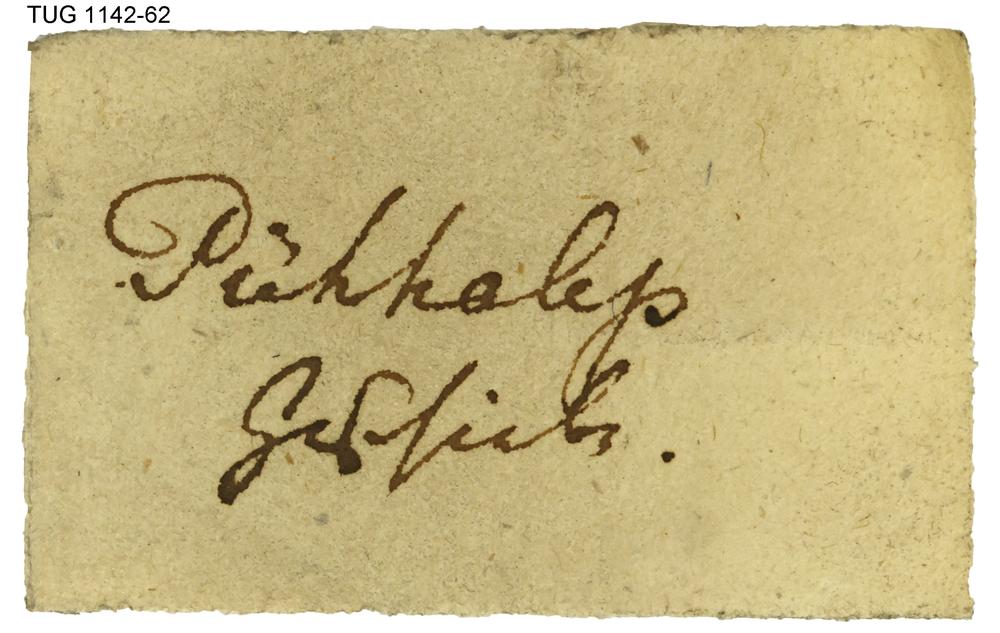 TUG 1142-62
Pühhalep